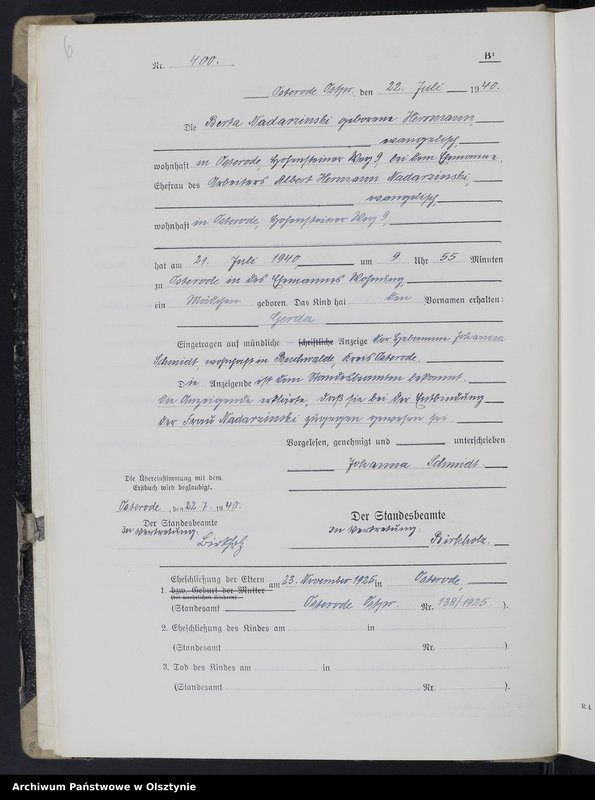 6
Nr. 400.
B¹
Osterode Ostpr., den 22. Juli 1940.
Die Berta Nadarzinski geborene Herrmann,
evangelisch,
wohnhaft in Osterode, Hohensteiner Weg 9, bei dem Ehemanne,
Ehefrau des Arbeiters Albert Hermann Nadarzinski,
evangelisch,
wohnhaft in Osterode, Hohensteiner Weg 9,
hat am 21. Juli 1940 um 9 Uhr 55 Minuten
zu Osterode in des Ehemannes Wohnung
ein Mädchen geboren. Das Kind hat den Vornamen erhalten:
Gerda
Eingetragen auf mündliche – schriftliche – Anzeige der Hebamme Johanna
Schmidt, wohnhaft in Buchwalde, Kreis Osterode.
Die Anzeigende ist dem Standesbeamten bekannt.
Die Anzeigende erklärte, daß sie bei der Entbindung
der Frau Nadarzinski zugegen gewesen sei.
Vorgelesen, genehmigt und unterschrieben
Johanna Schmidt.
Die Übereinstimmung mit dem
Erstbuch wird beglaubigt.
Osterode, den 22.7.1940.
Der Standesbeamte
In Vertretung
Birkholz
Der Standesbeamte
In Vertretung
Birkholz.
1. Eheschließung der Eltern am 23. November 1925 in Osterode,
bzw. Geburt der Mutter
(bei unehelichen Kindern)
(Standesamt Osterode Ostpr. Nr. 138/1925).
2. Eheschließung des Kindes am in
(Standesamt Nr. ).
3. Tod des Kindes am in
(Standesamt Nr. ).
St. 4.
Archiwum Państwowe w Olsztynie